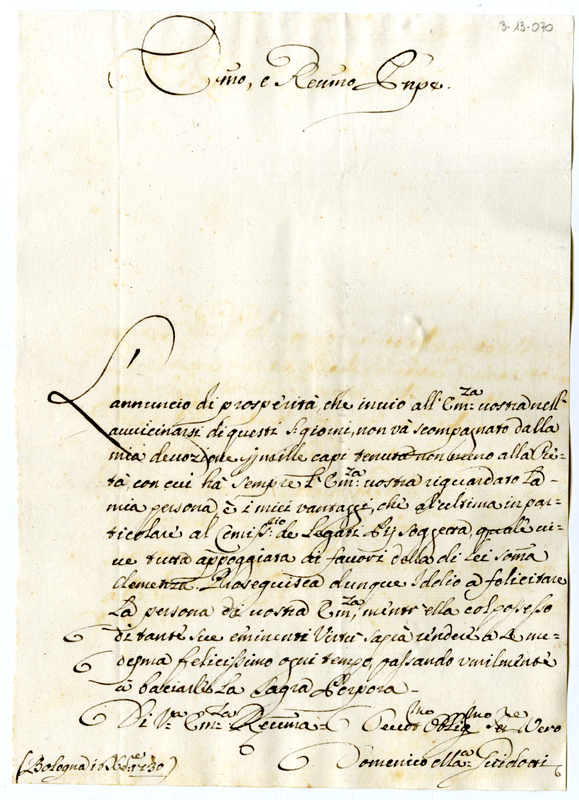 3-13-070
Emo, e Revmo Pnpe.
L'annuncio di prosperità, che invio all'Em:za vostra nell'
avvicinarsi di questi S. giorni, non và scompagnato dalla
mia devozione p mille capi tenuta non meno alla
tà, con cui hà sempre l'Em:za vostra riguardato la
mia persona, è i miei vantaggi, che al'ultima in par-
ticolare al de Legati Pij soggetta, quale vi-
ve tutta appoggiata ai favori della di lei soma
Clemenza. Proseguisca dunque Iddio a felicitare
la persona di vostra Em:za, mentr'ella col possesso
di tante sue eminenti Virtù sapià rendere à Se me-
desma felicissimo ogni tempo, passando umilmente
à baciarle la Sagra Porpora.
Di V:ra Em:za Revma Devot:mo Oblig:mo Se:re Vero
(Bologna 16 Xbre 1730) Domenico M:a Guidotti